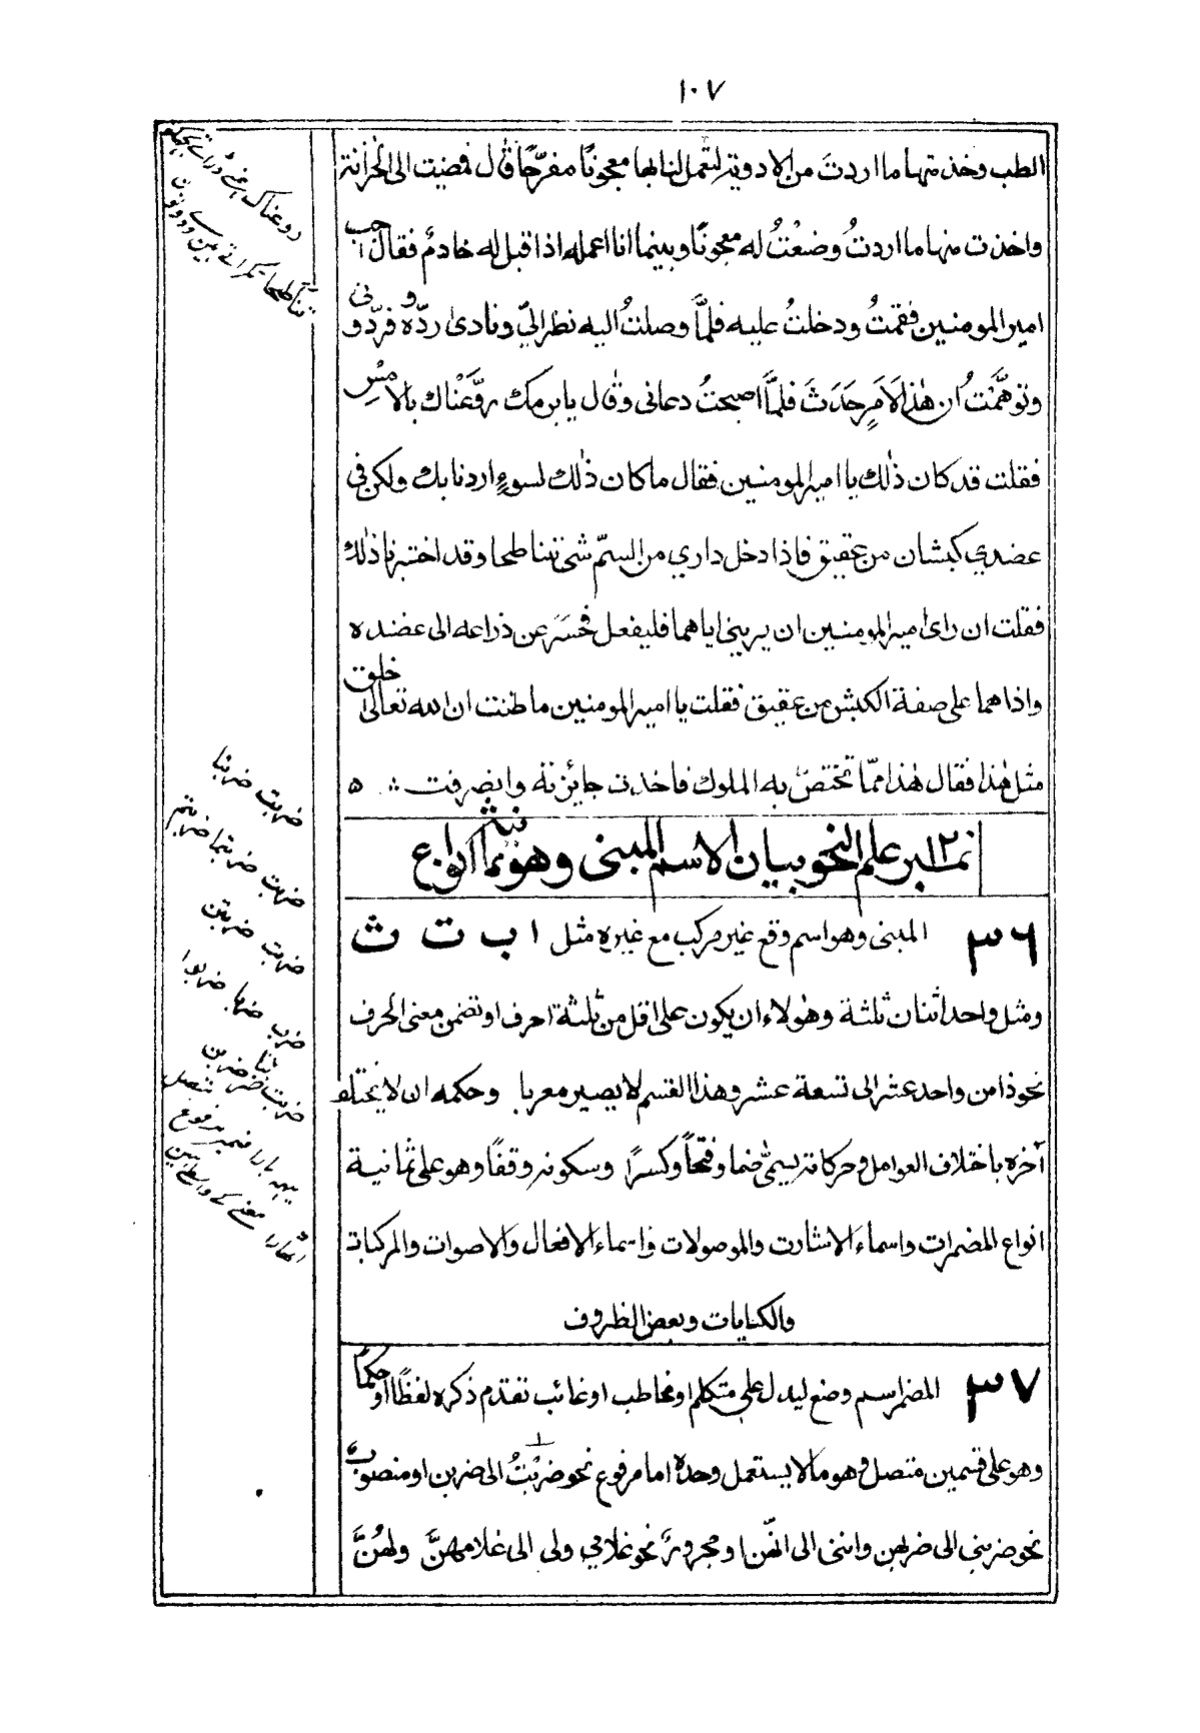 ١٠٧
الطب وخذ منها ما اردت من الادوية لتعمل لنا بها معجونًا مفرّحًا قال فمضيت الى الخزانة
واخذت منها ما اردتُ وضعْتُ له معجونًا وبينما انا اعمله اذا قبل له خادمٌ فقال اجب
امير المومنين فقمتُ ودخلتُ عليه فلمَّا وصلتُ اليه نظر اليّ ونادى ردّوه فردّونى
وتوهّمْتُ ان هٰذا لَاَمرٍ حَدَثَ فلمَّا اصبحتُ دعانى وقال يا برمك روَّعْناك بالامْسِ
فقلت قد كان ذٰلك يا امير المومنين فقال ما كان ذٰلك لسوءٍ اردنا بك ولكن فى
عضدي كبشان من عقيق فاذا دخل داري من السمّ شئ تناطحا وقد اختبرنا ذٰلك
فقلت ان راى امير المومنين ان يرينى اياهما فليفعل فحَسَرَ عن ذراعه الى عضده
واذا هما على صفة الكبش من عقيق فقلت يا امير المومنين ما ظننت ان الله تعالى خلق
مثل هٰذا فقال هٰذا ممّا تختصّ به الملوك فاخذت جايزته وانصرفت ؞ ٥
نمبر ١٢ علم النحو بيان الاسم المبنى وهو ثمانية انواع
٣٦ المبنى وهو اسم وقع غير مركب مع غيره مثل ا ب ت ث
ومثل واحد اثنان ثلثة وهٰولاء ان يكون على اقل من ثلثة احرف او تضمن معنى الحرف
نحو ذا من واحد عشر الى تسعة عشر وهذا القسم لا يصير معربا وحكمه ان لا يختلف
آخره باختلاف العوامل وحركاته يسمّى ضما وفتحًا وكسرًا وسكونه وقفًا وهو على ثمانية
انواع المضمرات واسماء الاشارت والموصولات واسماء الافعال والاصوات والمركبات
والكنايات وبعض الظروف
٣٧ المضمر اسم وضع ليدل على متكلم او مخاطب او غائب تقدم ذكره لفظًا او حكمًا
وهو على قسمين متصل وهو ما لا يستعمل وحده اما مرفوع نحو ضربْتُ الى ضربن او منصوب
نحو ضربنى الى ضربهن واننى الى انّهن او مجرورٌ نحو غلامي ولى الى غلامهنَّ ولهُنَّ
ضربت ضربنا
ضربت ضربتما ضربتم
ضربت ضربتن
ضرب ضربا ضربوا
ضربت ضربتا ضربن